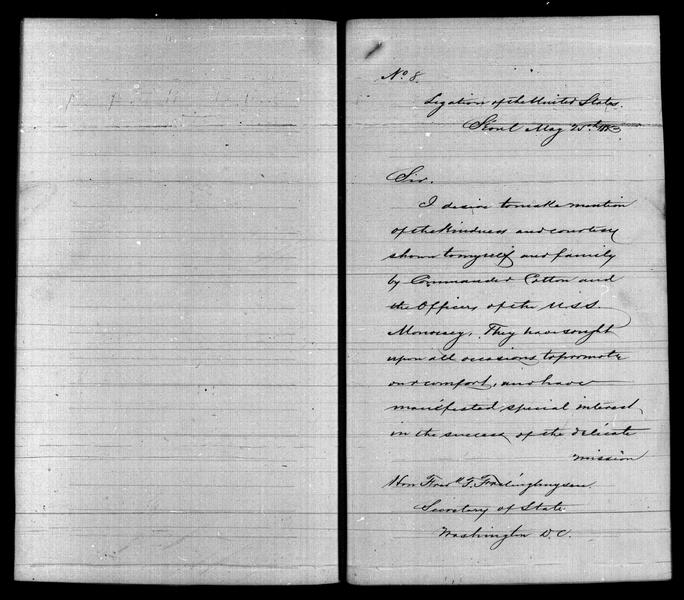 No. 8.
Legation of the United States.
Séoul May 25th 1883
Sir.
I desire to make mention
of the kindness and courtesy
shown to myself and family
by Commander Cotton and
the Officers of the U.S.S.
Monocacy. They have sought
upon all occasions to promote
our comfort, and have
manifested special interest
in the success of the delicate
mission
Hon Fredk T. Frelinghuysen
Secretary of State
Washington D.C.